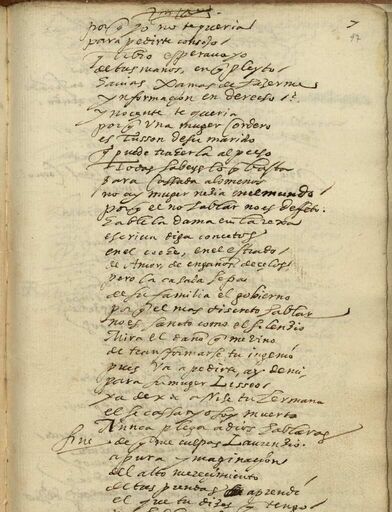 porq yo no te queria
para pedirte consejo
q libro esperaua yo
de tus manos, en q pleyto
hauias xamas de hazerme
ynformaçion en derecho
ynocente te queria
porq vna muger cordero
es tusson de su marido
q puede traerla al pecho
todas sabeys lo q basta
para cassada alomenos
no ay muger neçia en el mundo
porq el no hablar no es defeto
hable la dama en la rexa
escriua diga conçetos
en el coche, en el estrado
de Amor, de engaños de çelos
pero la casada sepa
de su familia el gobierno
porq el mas discreto hablar
no es santo como el silençio
Mira el daño q me vino
de transformarse tu ingenio
pues va a pedirte, ay de mi
para su muger Lisseo
ya dexa a Nise tu hermana
el se cassa yo soy muerto
Nunca plega a dios hablaras
fine - de que me culpas Laurençio
a pura ymaginaçion
del alto mereçimiento
de tus prendas aprendi
el que tu dizes q tengo